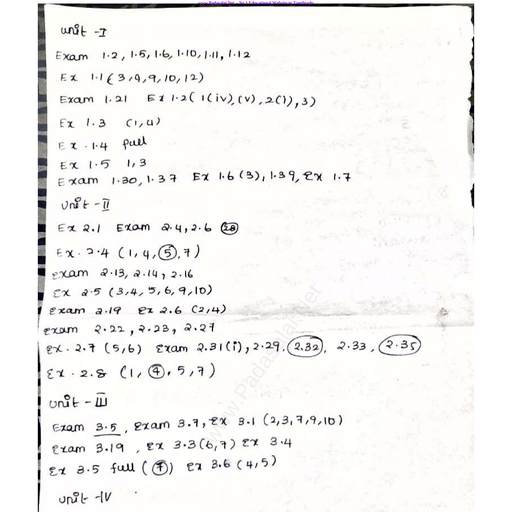 www.Padasalai.Net
Unit - I
Exam 1.2, 1.5, 1.6, 1.10, 1.11, 1.12
Ex 1.1 (3,4,9,10,12)
Exam 1.21 Ex 1.2 ( 1(iv), (v), 2(i), 3)
Ex 1.3 (1,4)
Ex . 1.4 full
Ex 1.5 1,3
Exam 1.30, 1.37 Ex 1.6 (3), 1.39, Ex 1.7
Unit - II
Ex 2.1 Exam 2.4, 2.6
Ex . 2.4 (1, 4, 5, 7)
exam 2.13, 2.14, 2.16
Ex 2.5 (3,4, 5, 6, 9, 10)
exam 2.19 Ex 2.6 (2,4)
exam 2.22, 2.23, 2.27
Ex . 2.7 (5,6) Exam 2.31(i), 2.29, 2.32, 2.33, 2.35
Ex . 2.8 (1, 4, 5, 7)
Unit - III
Exam 3.5, Exam 3.7, Ex 3.1 (2,3,7,9,10)
Exam 3.19, Ex 3.3 (6,7) Ex 3.4
Ex 3.5 full (7) Ex 3.6 (4,5)
Unit - IV